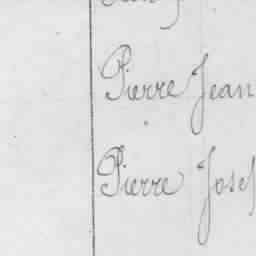 Pierre Jean
Pierre Josep